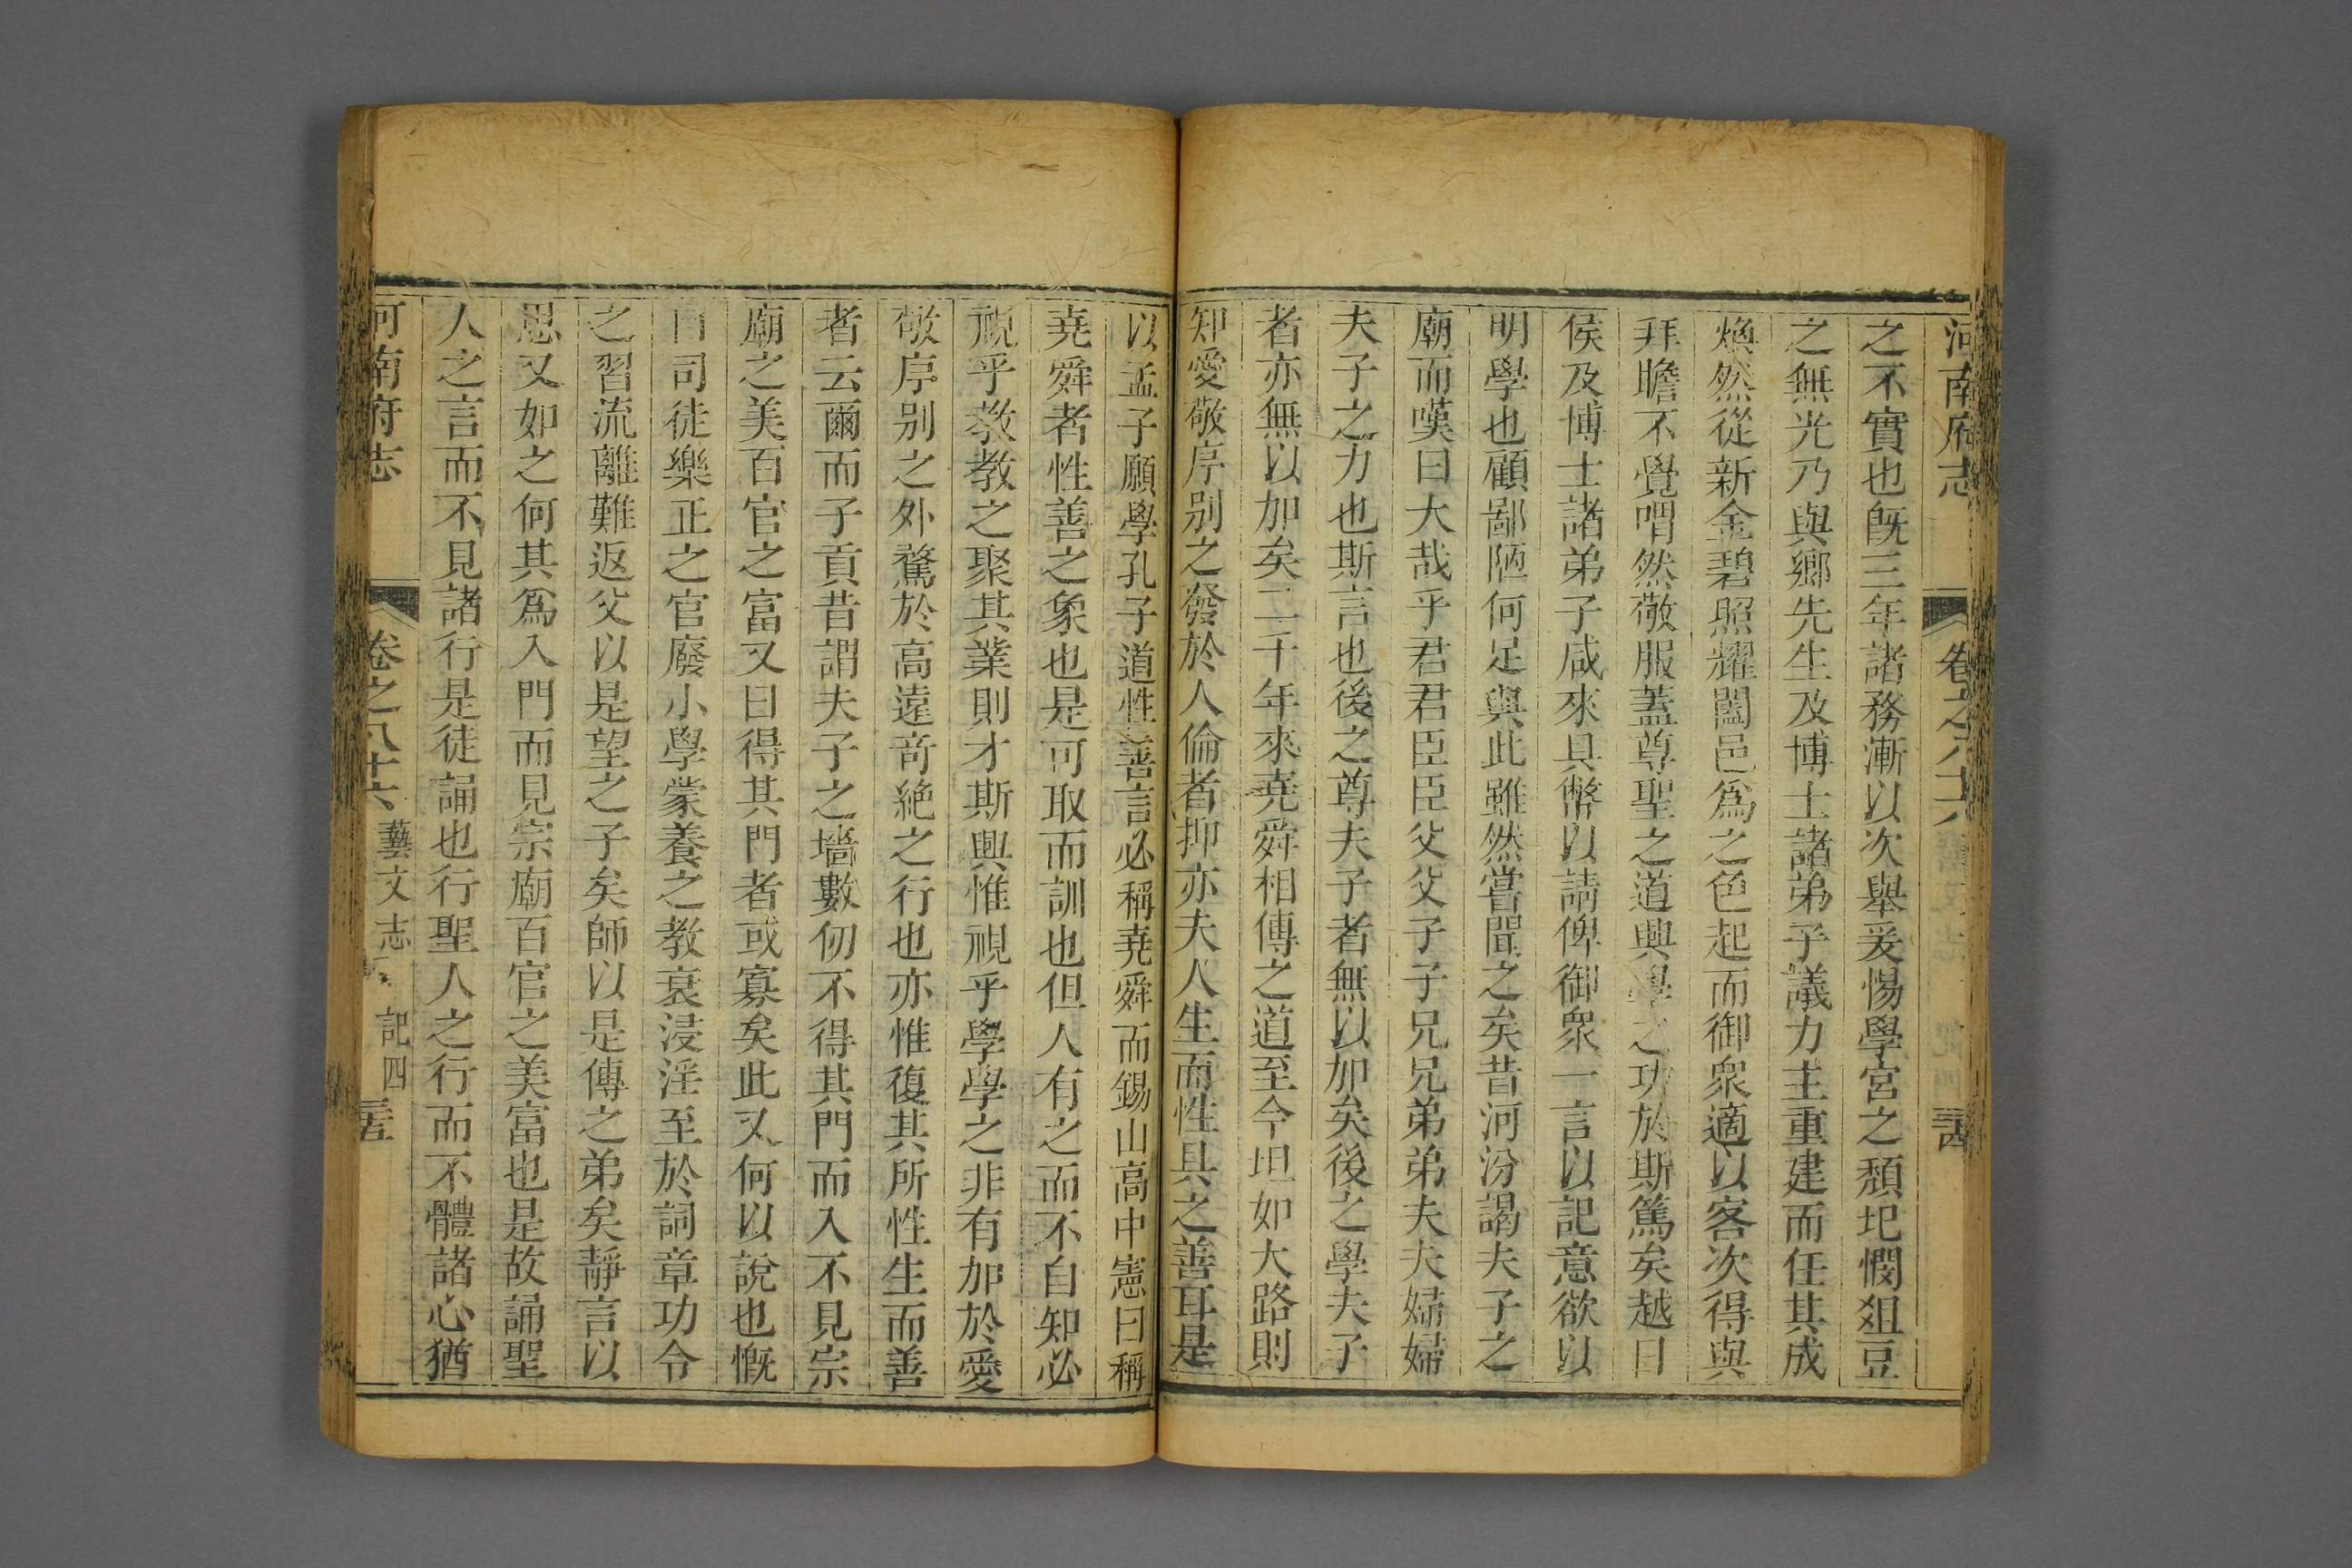 河南府志
卷之八十六
三十四
之不實也旣三年諸務漸以次舉爰惕學宮之頹圮憫俎豆
之無光乃與鄉先生及博士諸弟子議力主重建而任其成
煥然從新金碧照耀闔邑爲之色起而御衆適以客次得與
拜瞻不覺喟然敬服蓋尊聖之道興學之功於斯篤矣越日
侯及博士諸弟子咸來具幣以請俾御衆一言以記意欲以
明學也顧鄙陋何足與此雖然嘗聞之矣昔河汾謁夫子之
廟而嘆曰大哉乎君君臣臣父父子子兄兄弟弟夫夫婦婦
夫子之力也斯言也後之尊夫子者無以加矣後之學夫子
者亦無以加矣二千年來堯舜相傳之道至今坦如大路則
知愛敬序別之發於人倫者抑亦夫人生而性具之善耳是
以孟子願學孔子道性善言必稱堯舜而錫山高中憲曰稱
堯舜者性善之象也是可取而訓也但人有之而不自知必
視乎教教之聚其業則才斯興惟視乎學學之非有加於愛
敬序別之外騖於高遠竒絶之行也亦惟復其所性生而善
者云爾而子貢昔謂夫子之墻數仞不得其門而入不見宗
廟之美百官之富又曰得其門者或寡矣此又何以說也慨
自司徒樂正之官廢小學蒙養之教衰浸淫至於詞章功令
之習流離難返父以是望之子矣師以是傳之弟矣靜言以
思又如之何其爲入門而見宗廟百官之美富也是故誦聖
人之言而不見諸行是徒誦也行聖人之行而不體諸心猶
河南府志
卷之八十六
藝文志
記四
三十五